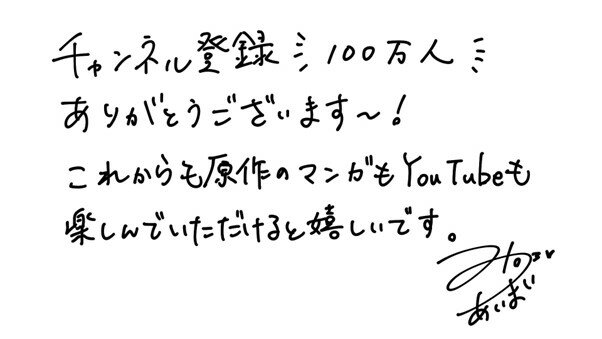 チャンネル登録 100万人
ありがとうございます～!
これからも原作のマンガもYouTubeも
楽しんでいただけると嬉しいです。
あいまい